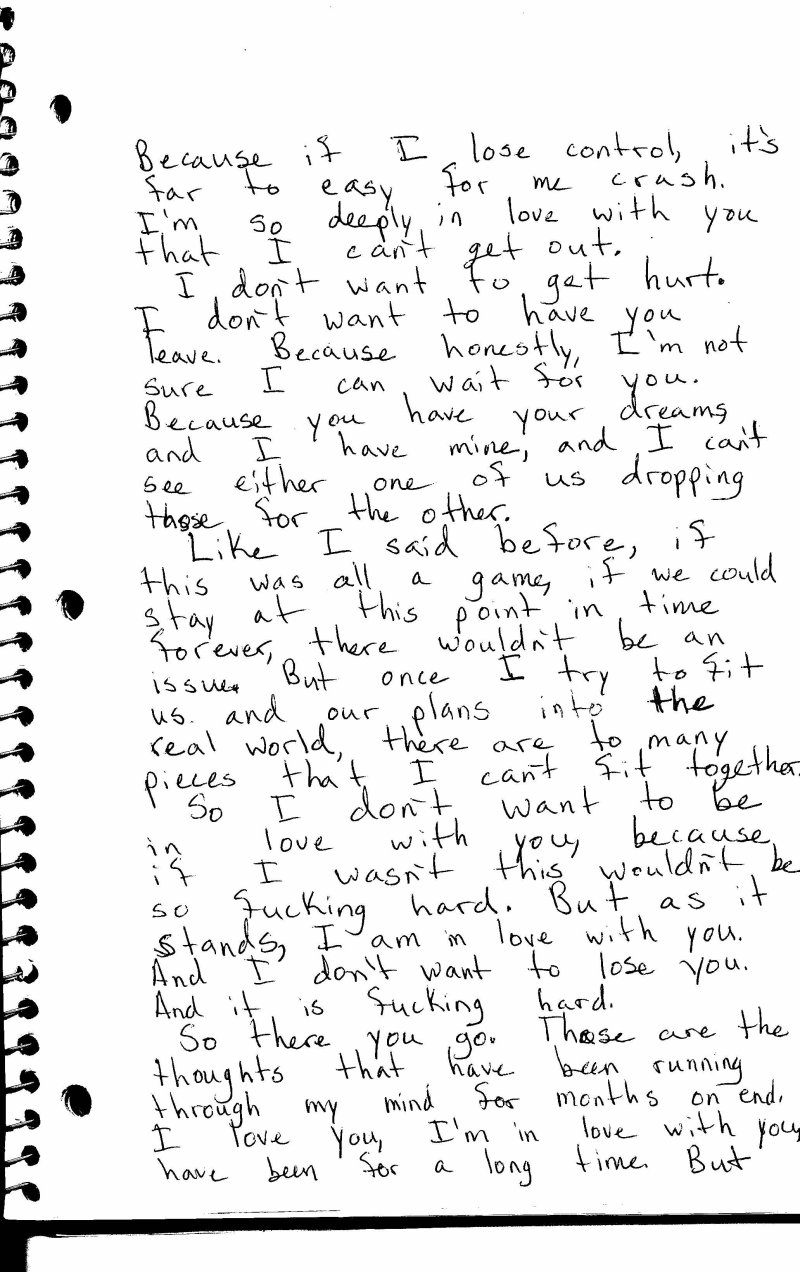 Because if I lose control, it's
far to easy for me crash.
I'm so deeply in love with you
that I can't get out.
I don't want to get hurt.
I don't want to have you
leave. Because honestly, I'm not
sure I can wait for you.
Because you have your dreams
and I have mine, and I can't
see either one of us dropping
those for the other.
Like I said before, if
this was all a game, if we could
stay at this point in time
forever, there wouldn't be an
issue. But once I try to fit
us and our plans into the
real world, there are to many
pieces that I can't fit together.
So I don't want to be
in love with you, because
if I wasn't this wouldn't be
so fucking hard. But as it
stands, I am in love with you.
And I don't want to lose you.
And it is fucking hard.
So there you go. Those are the
thoughts that have been running
through my mind for months on end.
I love you, I'm in love with you,
have been for a long time. But